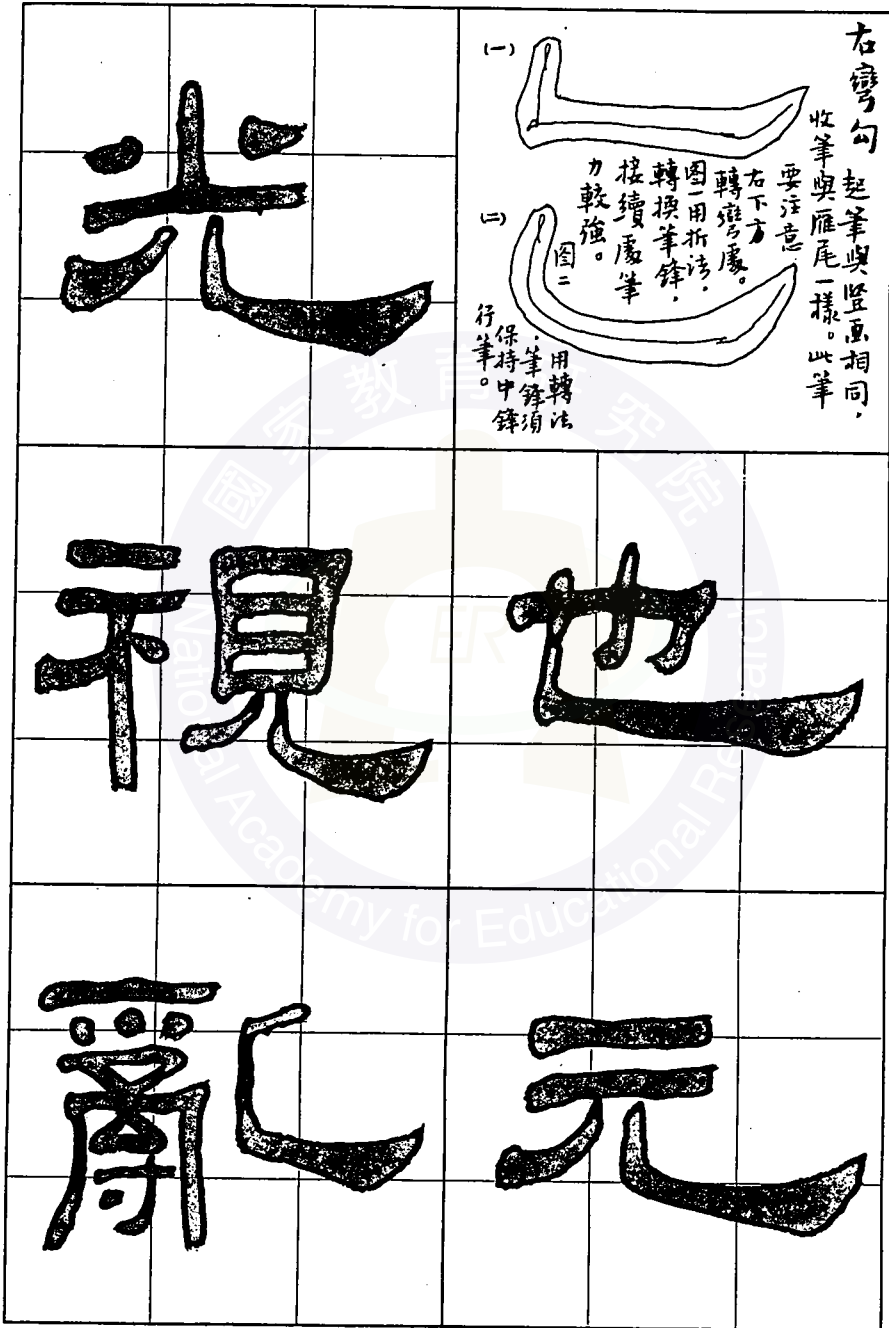 右彎勾
起筆與豎画相同，
收筆與雁尾一樣。此筆
要注意
右下方
轉彎處。
图一用折法，
轉換筆鋒，
接續處筆
力較強。
(一)
(二)
图二
用轉法
，筆鋒須
保持中鋒
行筆。
也
元
光
視
亂
國家教育研究院
National Academy for Educational Research
ER